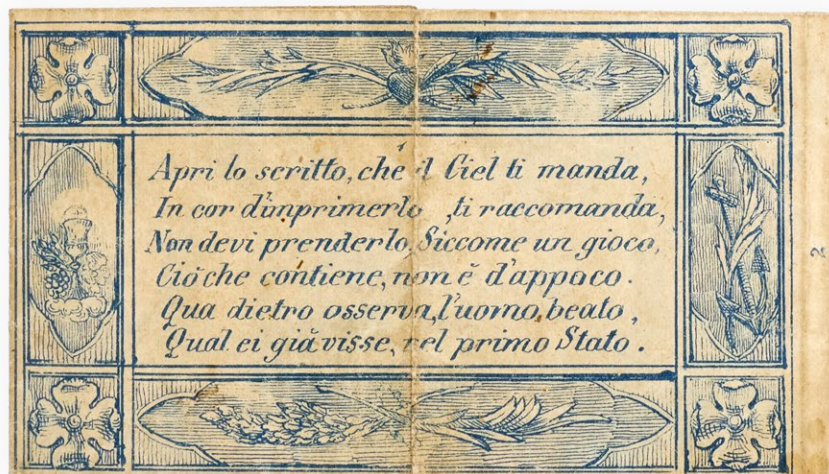 Apri lo scritto, ché il Ciel ti manda,
In cor d'imprimerlo, ti raccomanda,
Non devi prenderlo, Siccome un gioco,
Ciò che contiene, non è d'appoco.
Qua dietro osserva, l'uomo, beato,
Qual ei già visse, nel primo Stato.
2